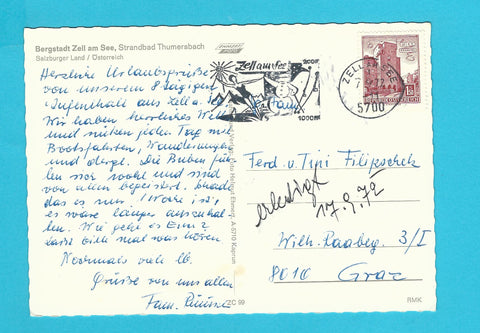 Bergstadt Zell am See, Strandbad Thumersbach
Salzburger Land / Österreich
Herzliche Urlaubsgrüße
von unserem 8 tägigen
Aufenthalt aus Zell a. See
Wir haben herrliches Wetter
und nützen jeden Tag mit
Bootsfahrten, Wanderungen
und dergl. Die Buben füh-
len sich wohl und sind
von allem begeistert. Schade
das es nur 1 Woche ist
es wäre länger auszuhal-
ten. Wie geht es Euch?
laßt bitte mal was hören
Nochmals viele lb.
Grüße von uns allen
Fam.
Zell am See
2000m
1000m
ZELL AM SEE
5700
Ferd. u. Tini Filipschek
erledigt
17.9.72
Wilh. Raabeg. 3/I
8010 Graz
ZC 99
RMK